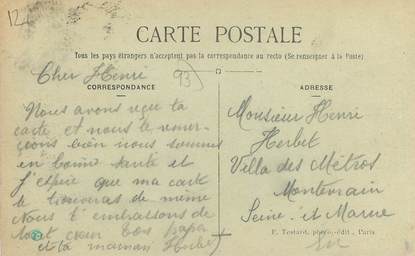 12
CARTE POSTALE
Tous les pays étrangers n'acceptent pas la correspondance au recto (Se renseigner à la Poste)
Cher Henri
93
CORRESPONDANCE
Nous avons reçu ta
carte et nous te remer-
çions bien nous sommes
en bonne santé et
J'espère que ma carte
te trouveras de meme
Nous t'embrassons de
tout cœur ton papa
et ta maman Herbet
ADRESSE
Monsieur Henri
Herbet
Villa des Métros
Montevrain
Seine et Marne
F. Testard, photo-édit., Paris